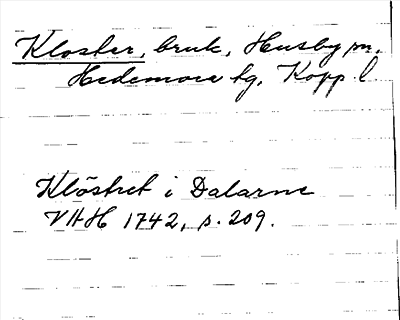 Kloster, bruk, Husby sn.
Hedemora tg, Kopp. l.
Klöstret i Dalarne
VHH 1742, s. 209.